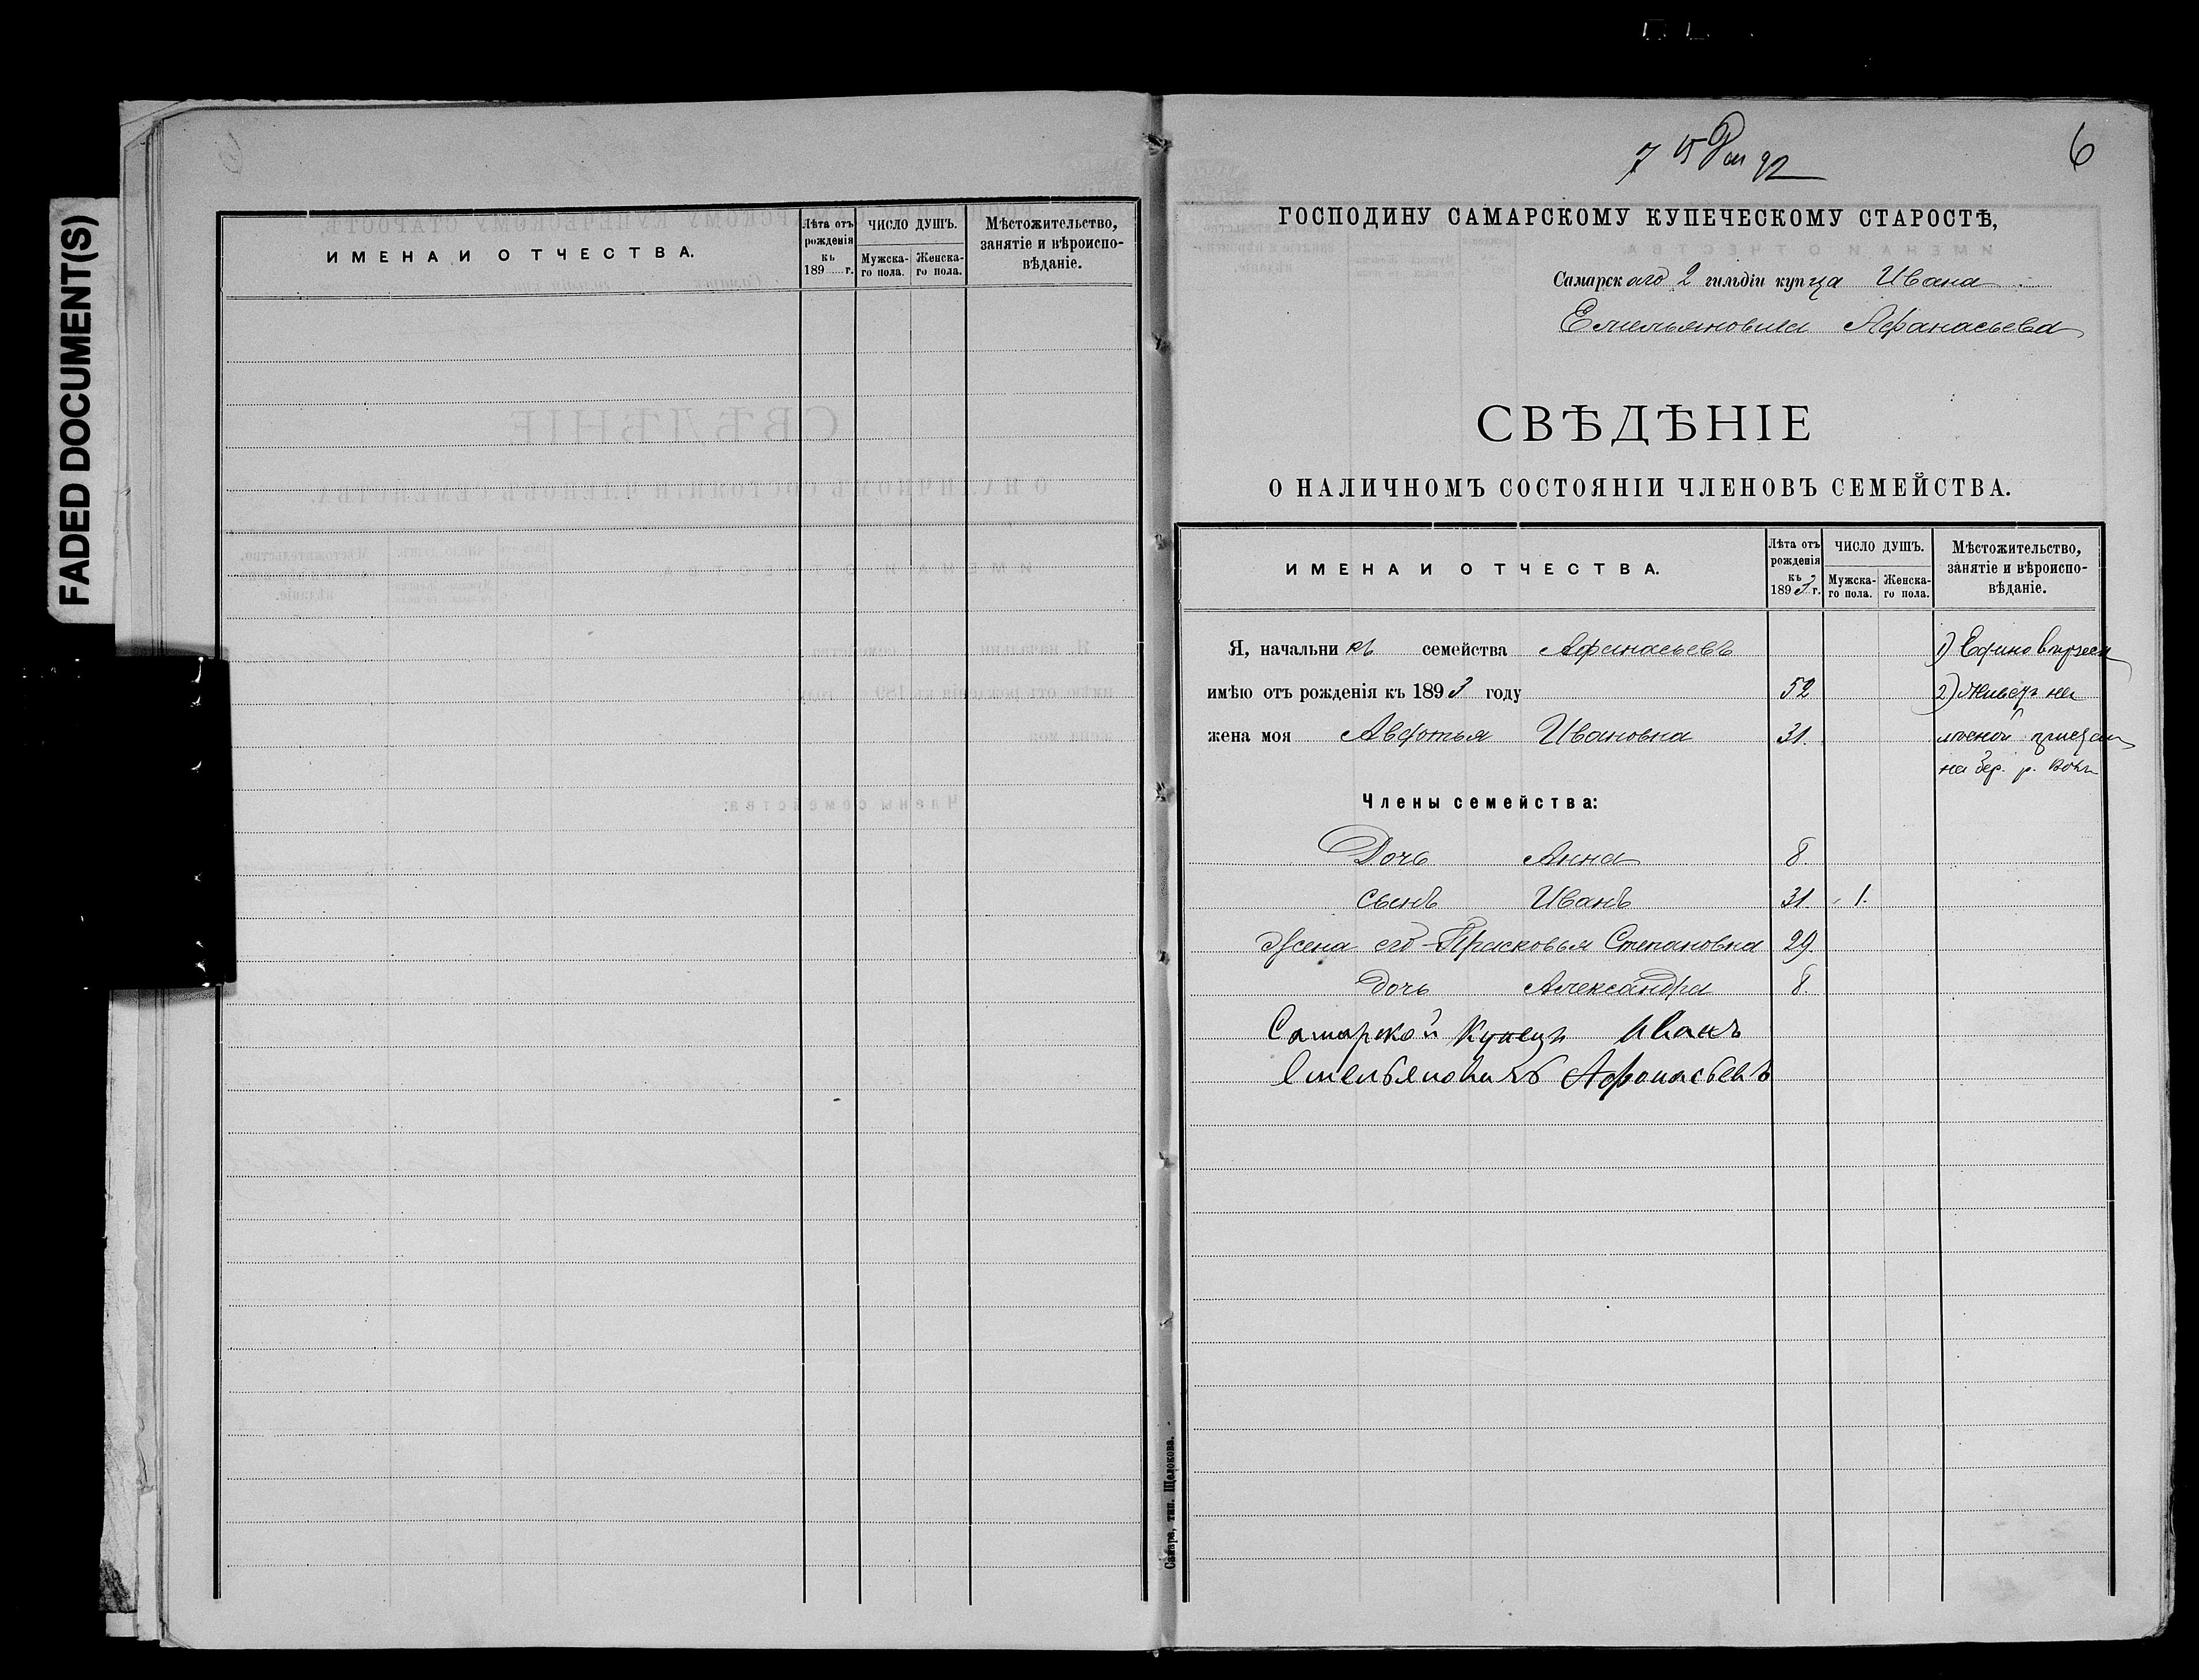 FADED DOCUMENT(S)
ИМЕНА И ОТЧЕСТВА.
Лѣта отъ рожденія къ 189 г.
ЧИСЛО ДУШЪ.
Мужска-го пола.
Женска-го пола.
Мѣстожительство, занятіе и вѣроиспо-вѣданіе.
6
7 92
ГОСПОДИНУ САМАРСКОМУ КУПЕЧЕСКОМУ СТАРОСТѢ,
Самарскаго 2 гильдіи купца Ивана
Емельяновича Афанасьева
СВѢДѢНІЕ
О НАЛИЧНОМЪ СОСТОЯНІИ ЧЛЕНОВЪ СЕМЕЙСТВА.
ИМЕНА И ОТЧЕСТВА.
Лѣта отъ рожденія къ 1893 г.
ЧИСЛО ДУШЪ.
Мужска-го пола.
Женска-го пола.
Мѣстожительство, занятіе и вѣроиспо-вѣданіе.
Я, начальникъ семейства Афанасьевъ 1)
имѣю отъ рожденія къ 1893 году 52 2) Живетъ на
жена моя Авдотья Ивановна 31. лѣсной пристани
на бер. р.
Члены семейства:
Дочь Анна 8.
сынъ Иванъ 31. 1.
Жена его Прасковья Степановна 29.
дочь Александра 8.
Самарской Купецъ Иванъ
Емельяновичъ Афонасьевъ
Самара, тип. Щелокова.